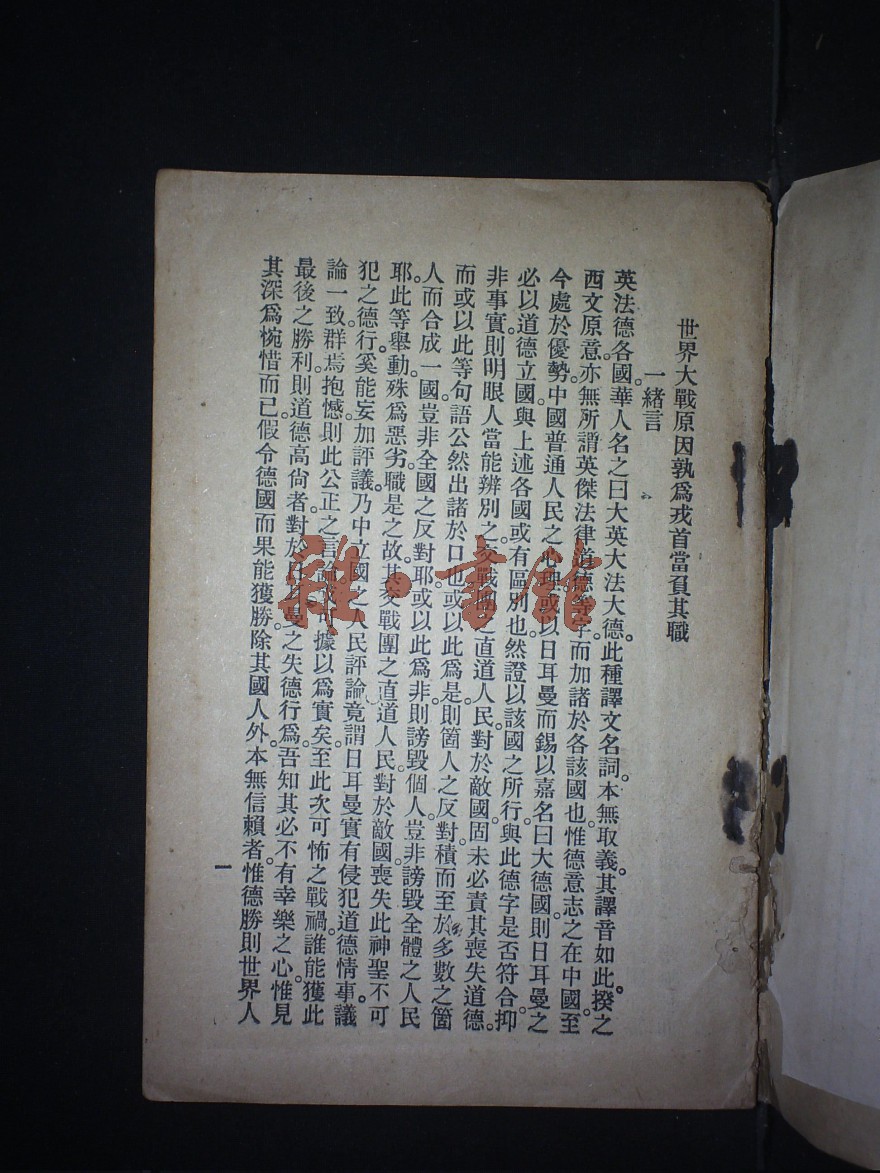 世界大戰原因孰爲戎首當負其職
一緒言
英法德各國。華人名之曰大英大法大德。此種譯文名詞。本無取義。其譯音如此。揆之
西文原意。亦無所謂英傑法律道德等字。而加諸於各該國也。惟德意志之在中國。至
今處於優勢。中國普通人民之心理。或以日耳曼而錫以嘉名曰大德國。則日耳曼之
必以道德立國。與上述各國或有區別也。然證以該國之所行。與此德字是否符合。抑
非事實。則明眼人當能辨別之。交戰團之直道人民。對於敵國。固未必責其喪失道德。
而或以此等句語公然出諸於口也。或以此爲是。則箇人之反對。積而至於多數之箇
人而合成一國。豈非全國之反對耶。或以此爲非。則謗毀個人。豈非謗毀全體之人民
耶。此等舉動。殊爲惡劣。職是之故。其交戰團之直道人民。對於敵國。喪失此神聖不可
犯之德行。奚能妄加評議。乃中立國之人民評論。竟謂日耳曼實有侵犯道德情事。議
論一致。群焉抱憾。則此公正之言論。據以爲實矣。至此次可怖之戰禍。誰能獲此
最後之勝利。則道德高尙者。對於日耳曼之失德行爲。吾知其必不有幸樂之心。惟見
其深爲惋惜而已。假令德國而果能獲勝。除其國人外。本無信賴者。惟德勝則世界人
一
雜·書館